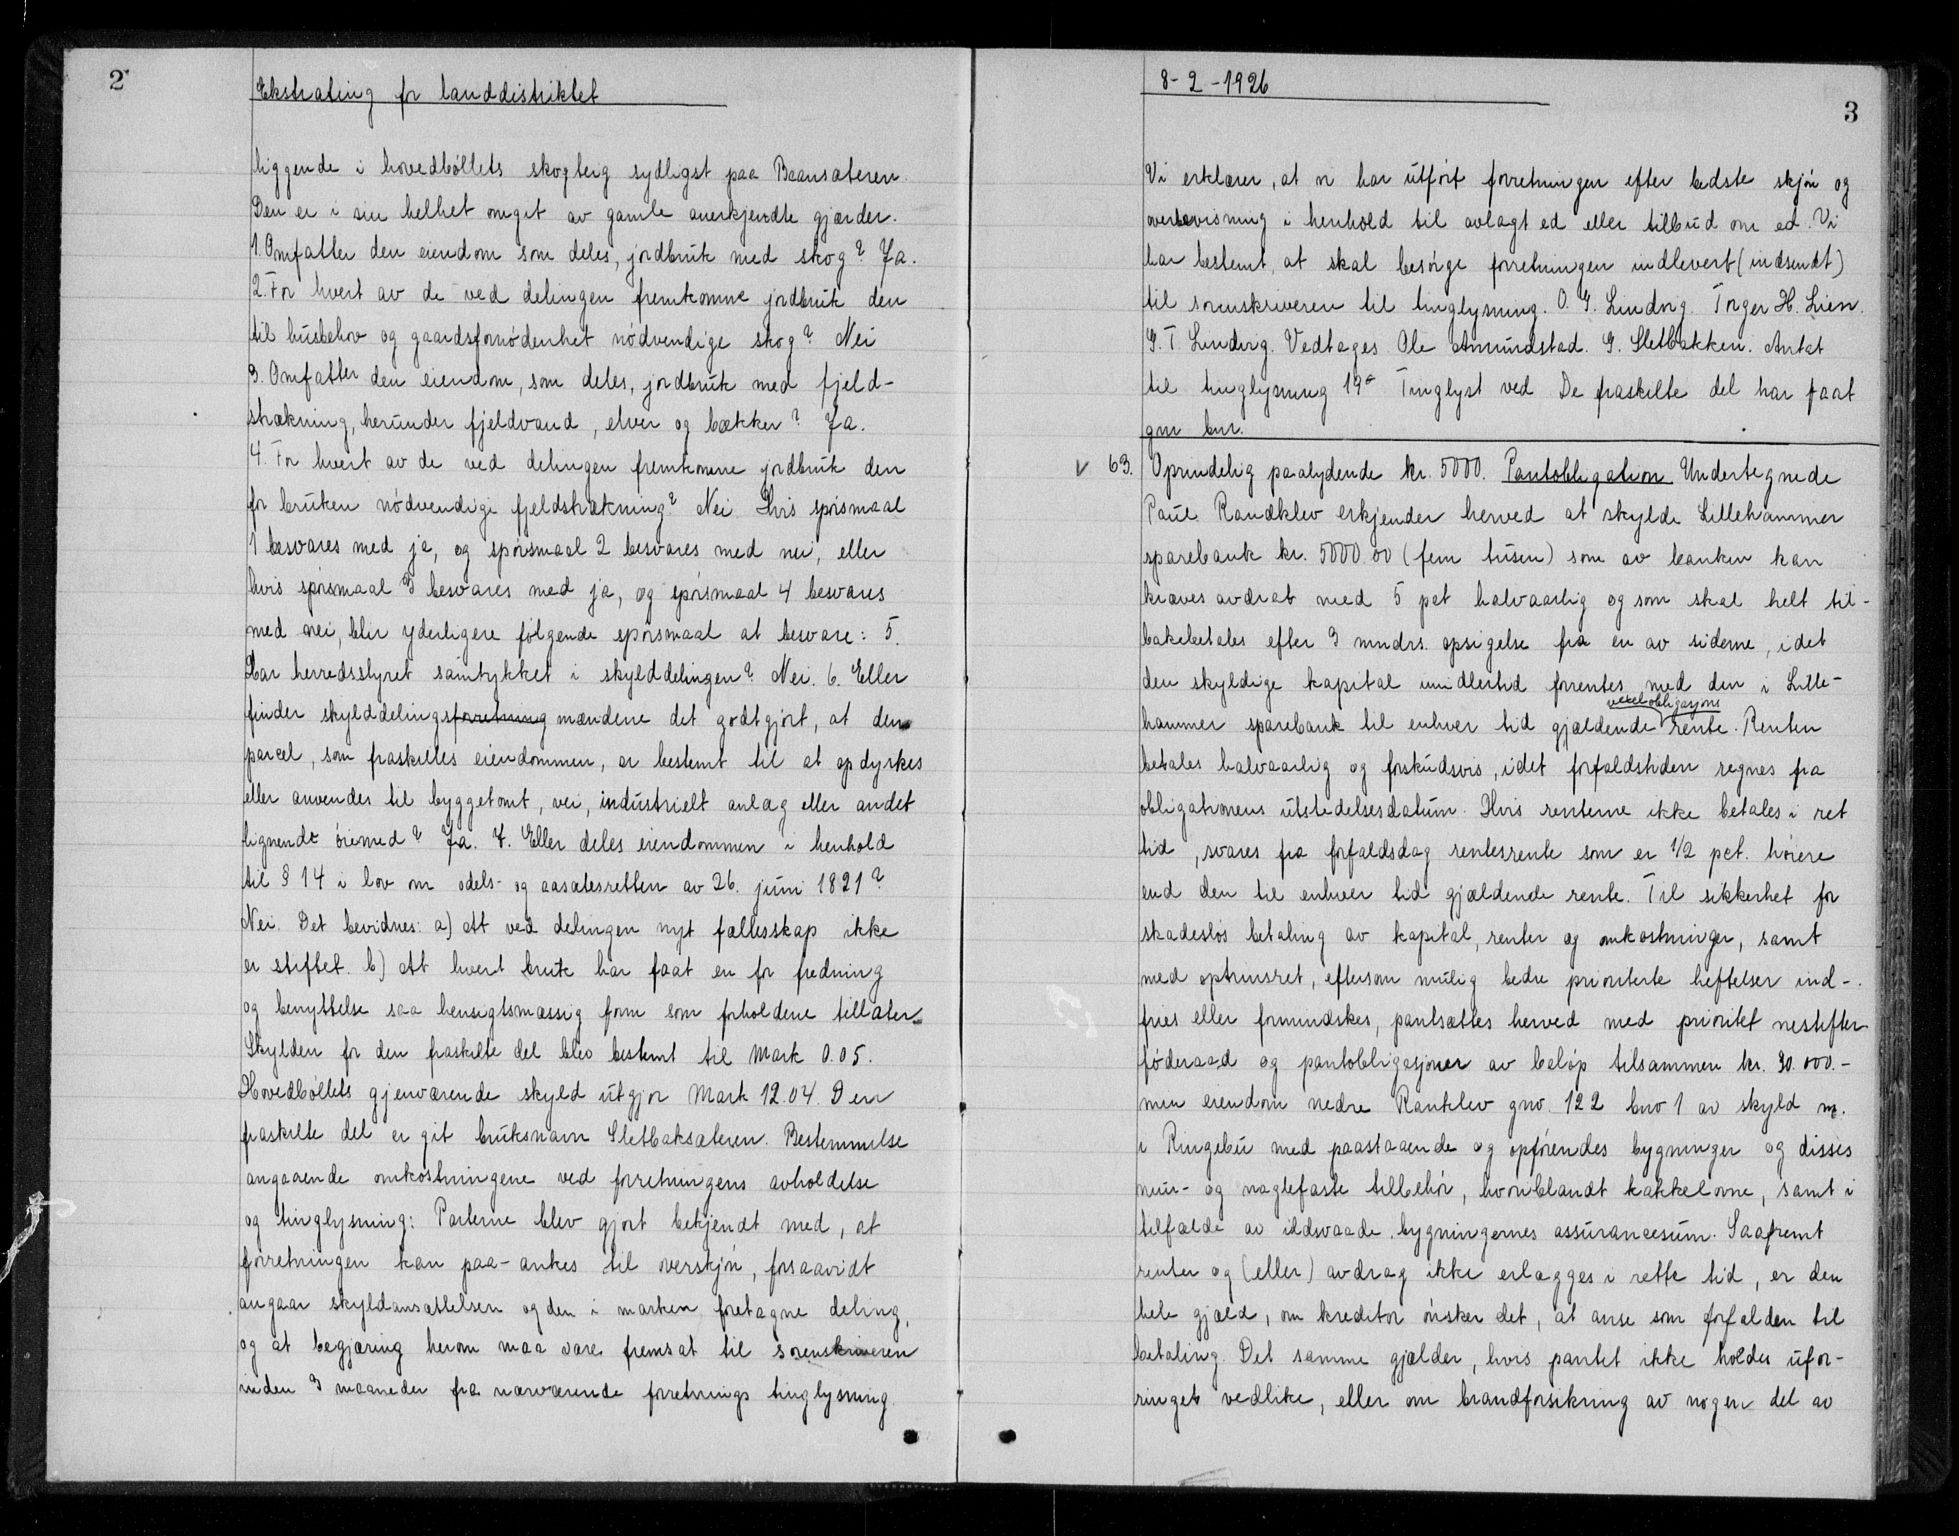 2
Ekstrating for landdistriktet
liggende i hovedbøllets skogteig sydligst paa Baansæteren.
Den er i sin helhet omgit av gamle anerkjendte gjærder.
1. Omfatter den eiendom som deles, jordbruk med skog? Ja.
2. For hvert av de ved delingen fremkomne jordbruk den
til husbehov og gaardsfornødenhet nødvendige skog? Nei
3. Omfatter den eiendom, som deles, jordbruk med fjeld-
strækning, herunder fjeldvand, elver og bækker? Ja.
4. For hvert av de ved delingen fremkomne jordbruk den
for bruken nødvendige fjeldstrækning? Nei Hvis spørsmaal
1 besvares med ja, og spørsmaal 2 besvares med nei, eller
hvis spørsmaal 3 besvares med ja, og spørsmaal 4 besvares
med nei, blir yderligere følgende spørsmaal at besvare: 5.
Har herredsstyret samtykket i skylddelingen? Nei. 6. Eller
finder skylddelingsforretning mændene det godtgjort, at den
parcel, som fraskilles eiendommen, er bestemt til at opdyrkes
eller anvendes til byggetomt, vei, industrielt anlæg eller andet
lignende øiemed? Ja. 7. Eller deles eiendommen i henhold
til § 14 i lov om odels- og aasætesretten av 26. juni 1821?
Nei. Det bevidnes: a) Att ved delingen nyt fællesskap ikke
er stiftet. b) Att hvert bruk har faat en for fredning
og benyttelse saa hensigtsmæssig form som forholdene tillater
Skylden for den fraskilte del blev bestemt til Mark 0.05.
Hovedbøllets gjenværende skyld utgjør Mark 12.04. Den
fraskilte del er git bruksnavn Sletbaksæteren. Bestemmelse
angaaende omkostningene ved forretningens avholdelse
og tinglysning: Parterne blev gjort bekjendt med, at
forretningen kan paa-ankes til overskjøn, forsaavidt
angaar skyldansættelsen og den i marken foretagne deling,
og at begjæring herom maa være fremsat til sorenskriveren
inden 3 maaneder fra nærværende forretnings tinglysning
8-2-1926
3
Vi erklærer, at vi har utført forretningen efter bedste skjøn og
overbevisning i henhold til avlagt ed eller tilbud om ed. Vi
har bestemt, at skal besørge forretningen indlevert (indsendt)
til sorenskriveren til tinglysning. O. G. Lindorg. Torger H. Lien.
G. T. Linderg. Vedtages Ole Amundstad. G. Sletbakken. Antat
til tinglysning 19 Tinglyst ved De fraskilte del har faat
gnr bnr.
V 63. Oprindelig paalydende kr. 5000. Pantobligation Undertegnede
Paul Randklev erkjender herved at skylde Lillehammer
sparebank kr. 5000.00 (fem tusen) som av banken kan
kræves avdrat med 5 pct halvaarlig og som skal helt til-
bakebetales efter 3 mndrs. opsigelse fra en av siderne, idet
den skyldige kapital imidlertid forrentes med den i Lille-
vexelobligasjons
hammer sparebank til enhver tid gjældende rente. Renten
betales halvaarlig og forskudsvis, idet forfaldstiden regnes fra
obligationens utstedelsesdatum. Hvis renterne ikke betales i ret
tid, svares fra forfaldsdag rentesrente som er 1/2 pct. høiere
end den til enhver tid gjældende rente. Til sikkerhet for
skadesløs betaling av kapital, renter og omkostninger, samt
med optrinsret, eftersom mulig bedre prioriterte heftelser ind-
fries eller formindskes, pantsættes herved med prioritet nestefter
føderaad og pantobligasjoner av beløp tilsammen kr. 30.000.-
min eiendom nedre Ranklev gno. 122 bno 1 av skyld m.
i Ringebu med paastaaende og opførendes bygninger og disses
mur- og naglefaste tilbehør, hvoriblandt kakkelovne, samt i
tilfælde av ildsvaade bygningernes assurancesum. Saafremt
renter og (eller) avdrag ikke erlægges i rette tid, er den
hele gjæld, om kreditor ønsker det, at anse som forfalden til
betaling. Det samme gjælder, hvis pantet ikke holdes ufor-
ringet vedlike, eller om brandforsikring av nogen del av